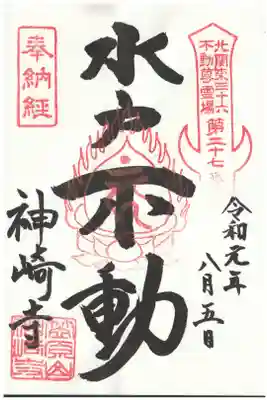 北関東三十六
不動尊霊場
第二十七
奉納経
水戸不動
令和元年
八月五日
神崎寺